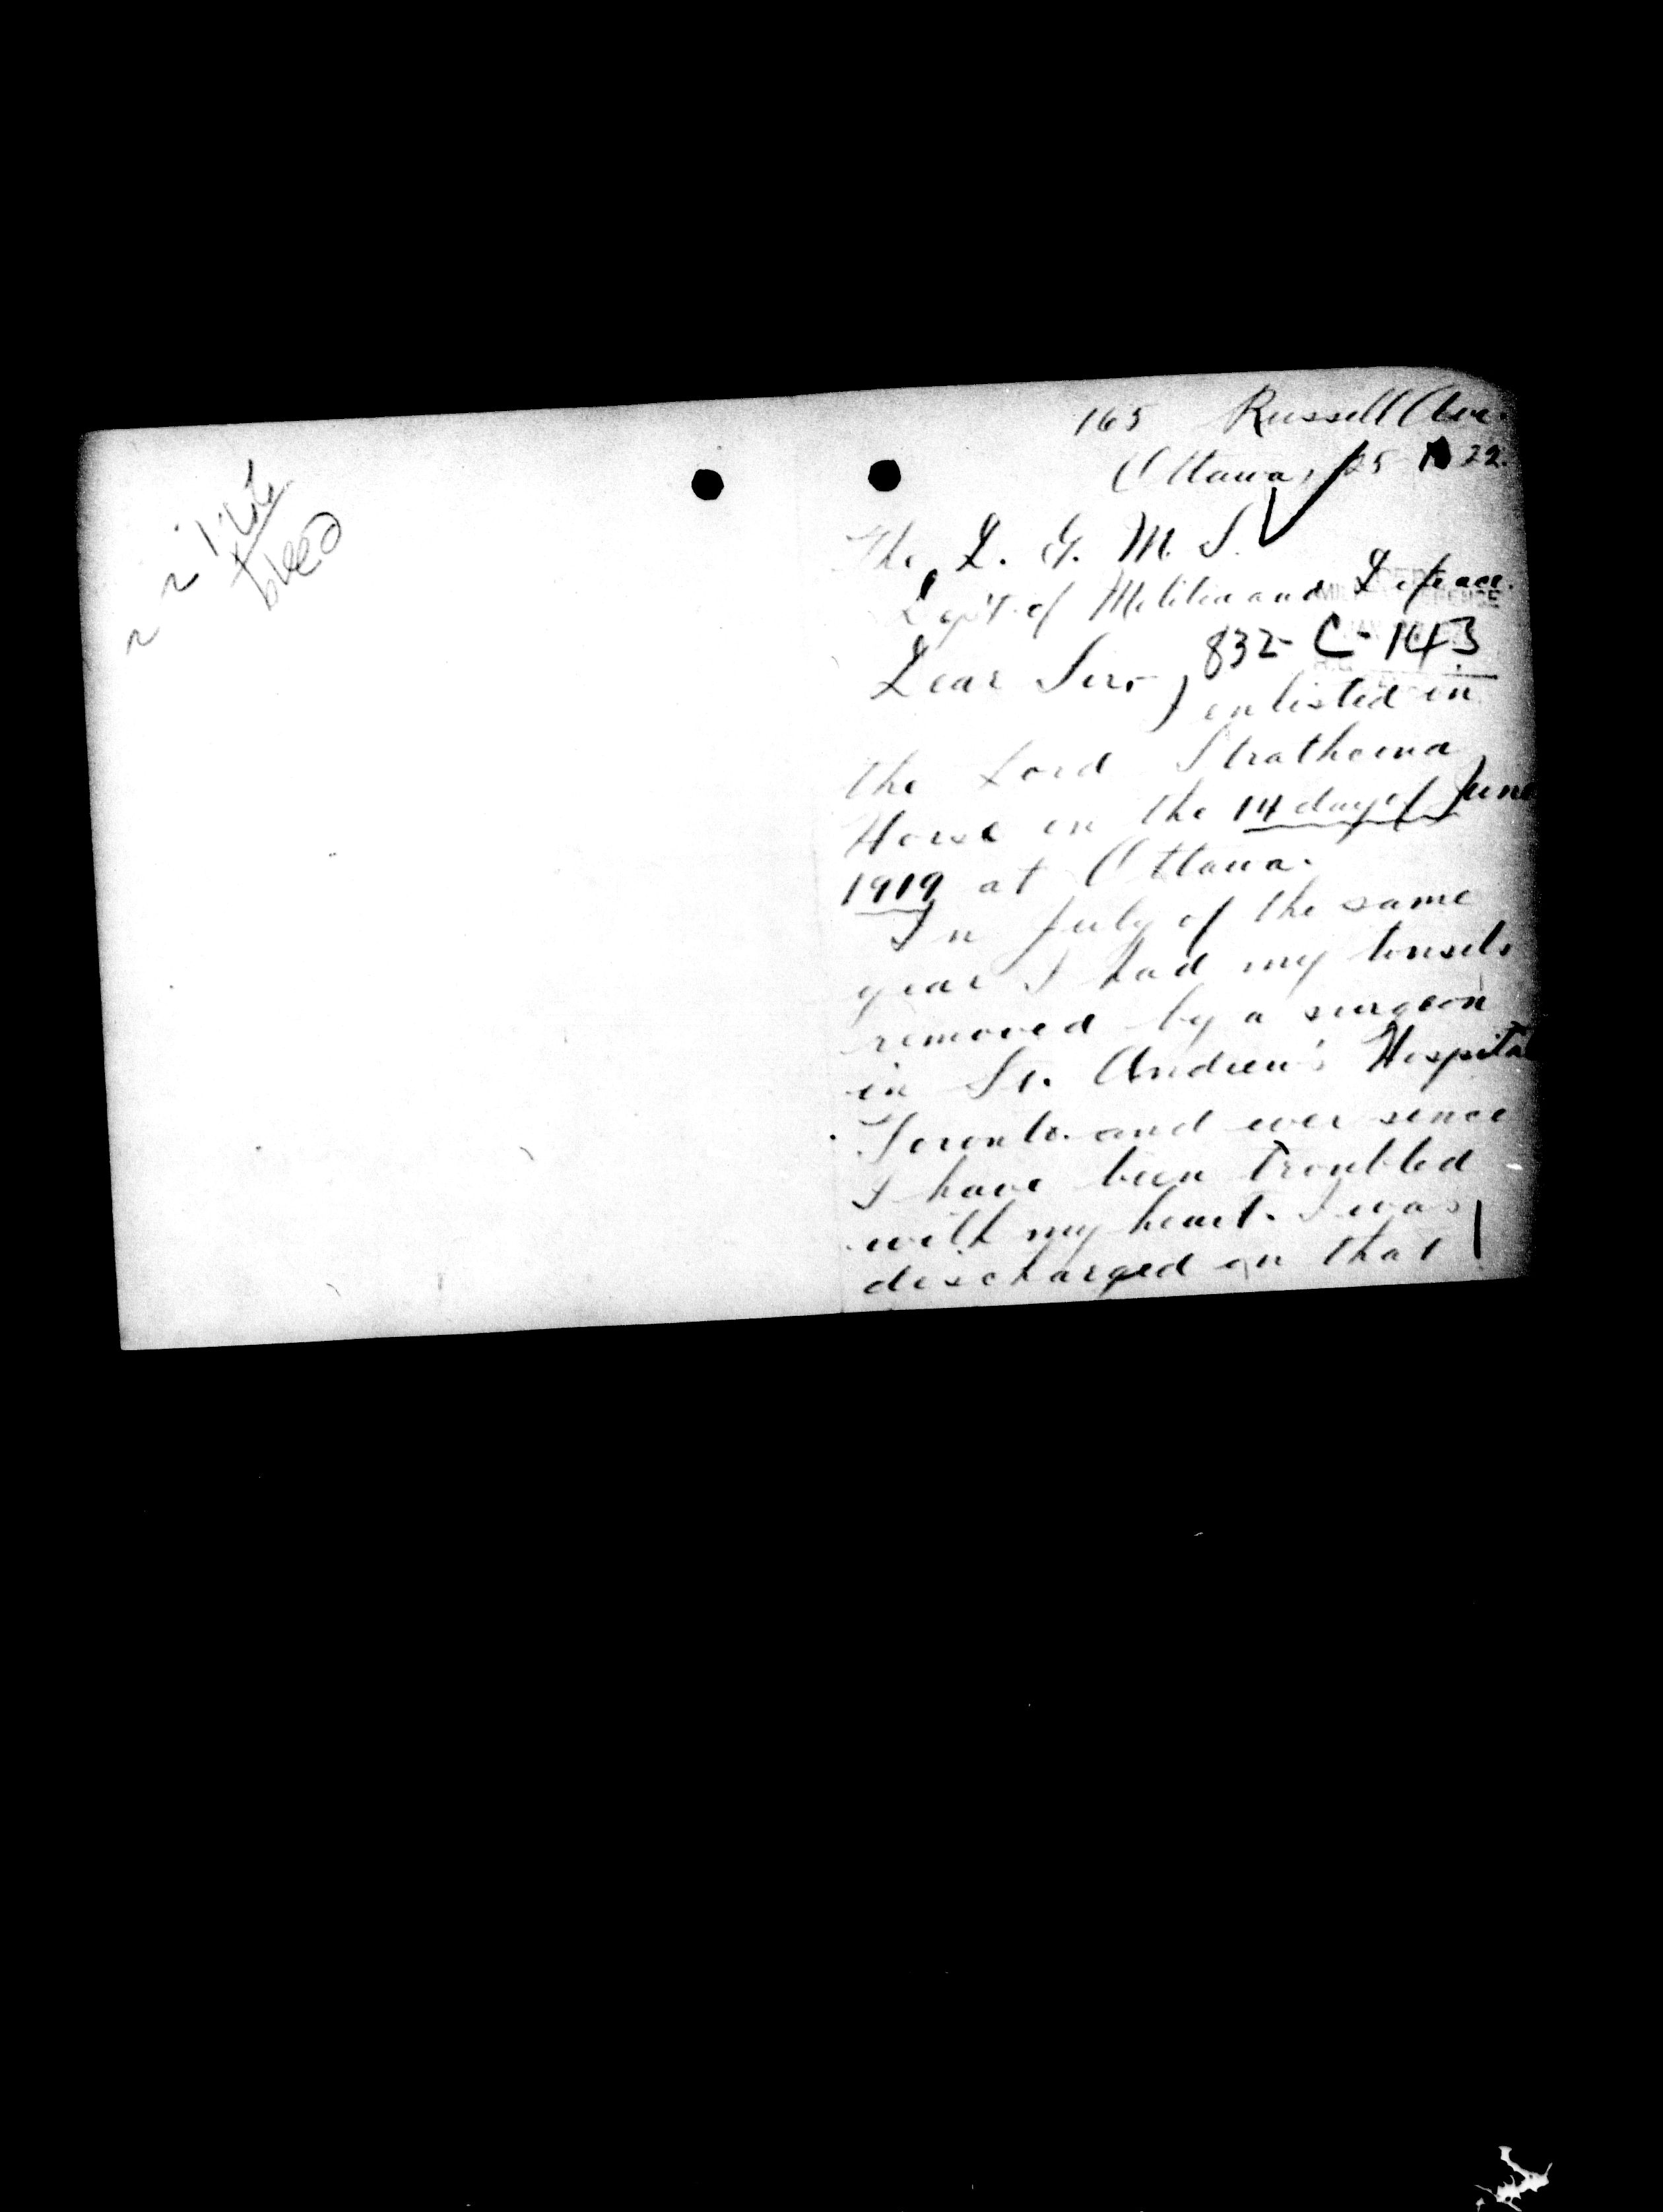 165 Russell Ave.
Ottawa, 25 22.
The D. G. M. S.
Dept of Militia and Defence.
832- C- 143
Dear Sir,-
I enlisted in
the Lord Strathcona
Horse on the 14 day of June
1919 at Ottawa.
In July of the same
year I had my tonsils
removed by a surgeon
in St. Andrew's Hospital
Toronto and ever since
I have been troubled
with my heart. I was
discharged on that